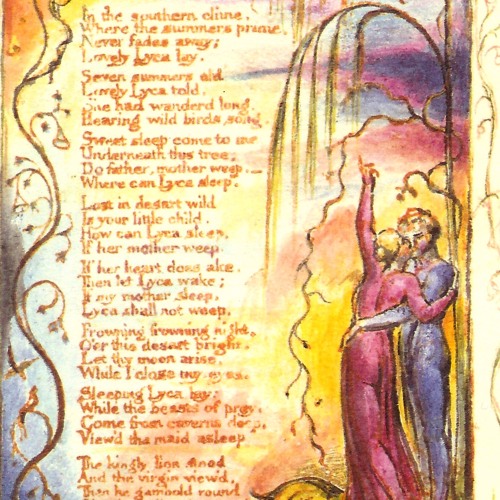 In the southern clime,
Where the summers prime,
Never fades away;
Lovely Lyca lay.
Seven summers old
Lovely Lyca told,
She had wanderd long,
Hearing wild birds song.
Sweet sleep come to me
Underneath this tree;
Do father, mother weep.—
Where can Lyca sleep.
Lost in desart wild
Is your little child.
How can Lyca sleep,
If her mother weep.
If her heart does ake,
Then let Lyca wake;
If my mother sleep,
Lyca shall not weep.
Frowning frowning night,
O'er this desart bright,
Let thy moon arise,
While I close my eyes.
Sleeping Lyca lay;
While the beasts of prey,
Come from caverns deep,
View'd the maid asleep
The kingly lion stood
And the virgin view'd,
Then he gambold round